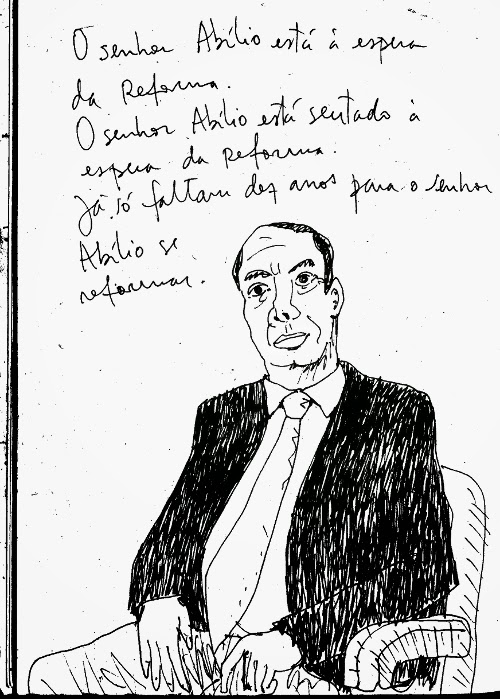 O senhor Abílio está à espera
da Reforma.
O senhor Abílio está sentado à
espera da Reforma.
Já só faltam dez anos para o senhor
Abílio se
reformar.